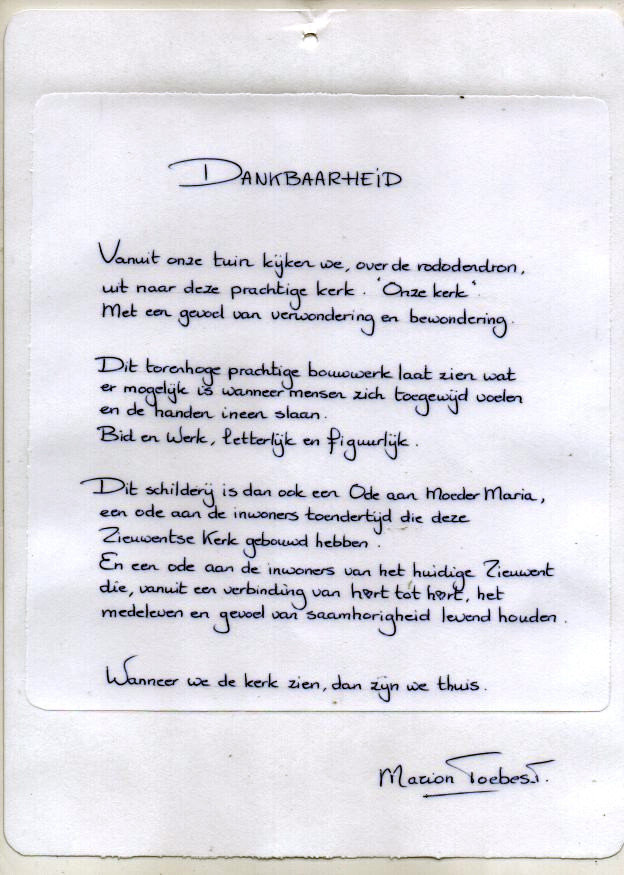 DANKBAARHEID
Vanuit onze tuin kijken we, over de rododendron,
uit naar deze prachtige kerk. "Onze kerk".
Met een gevoel van verwondering en bewondering.
Dit torenhoge prachtige bouwwerk laat zien wat
er mogelijk is wanneer mensen zich toegewijd voelen
en de handen ineen slaan.
Bid en Werk, letterlijk en figuurlijk.
Dit schilderij is dan ook een Ode aan Moeder Maria,
een ode aan de inwoners toendertijd die deze
Zieuwentse Kerk gebouwd hebben.
En een ode aan de inwoners van het huidige Zieuwent
die, vanuit een verbinding van h♥rt tot h♥rt, het
medeleven en gevoel van saamhorigheid levend houden.
Wanneer we de kerk zien, dan zijn we thuis.
Marion Toebes.T.